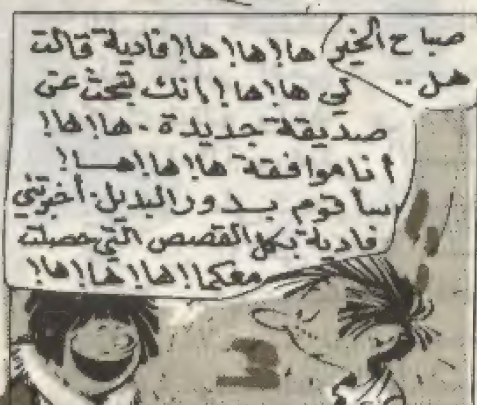 صباح الخير
هل..
ها! ها! ها! فادية قالت
لي ها! ها! إنك تبحث عن
صديقة جديدة - ها! ها!
أنا موافقة ها! ها! هـا!
سأقوم بـدور البديل. أخبرتني
فادية بكل القصص التي حصلت
معكما! ها! ها! ها!